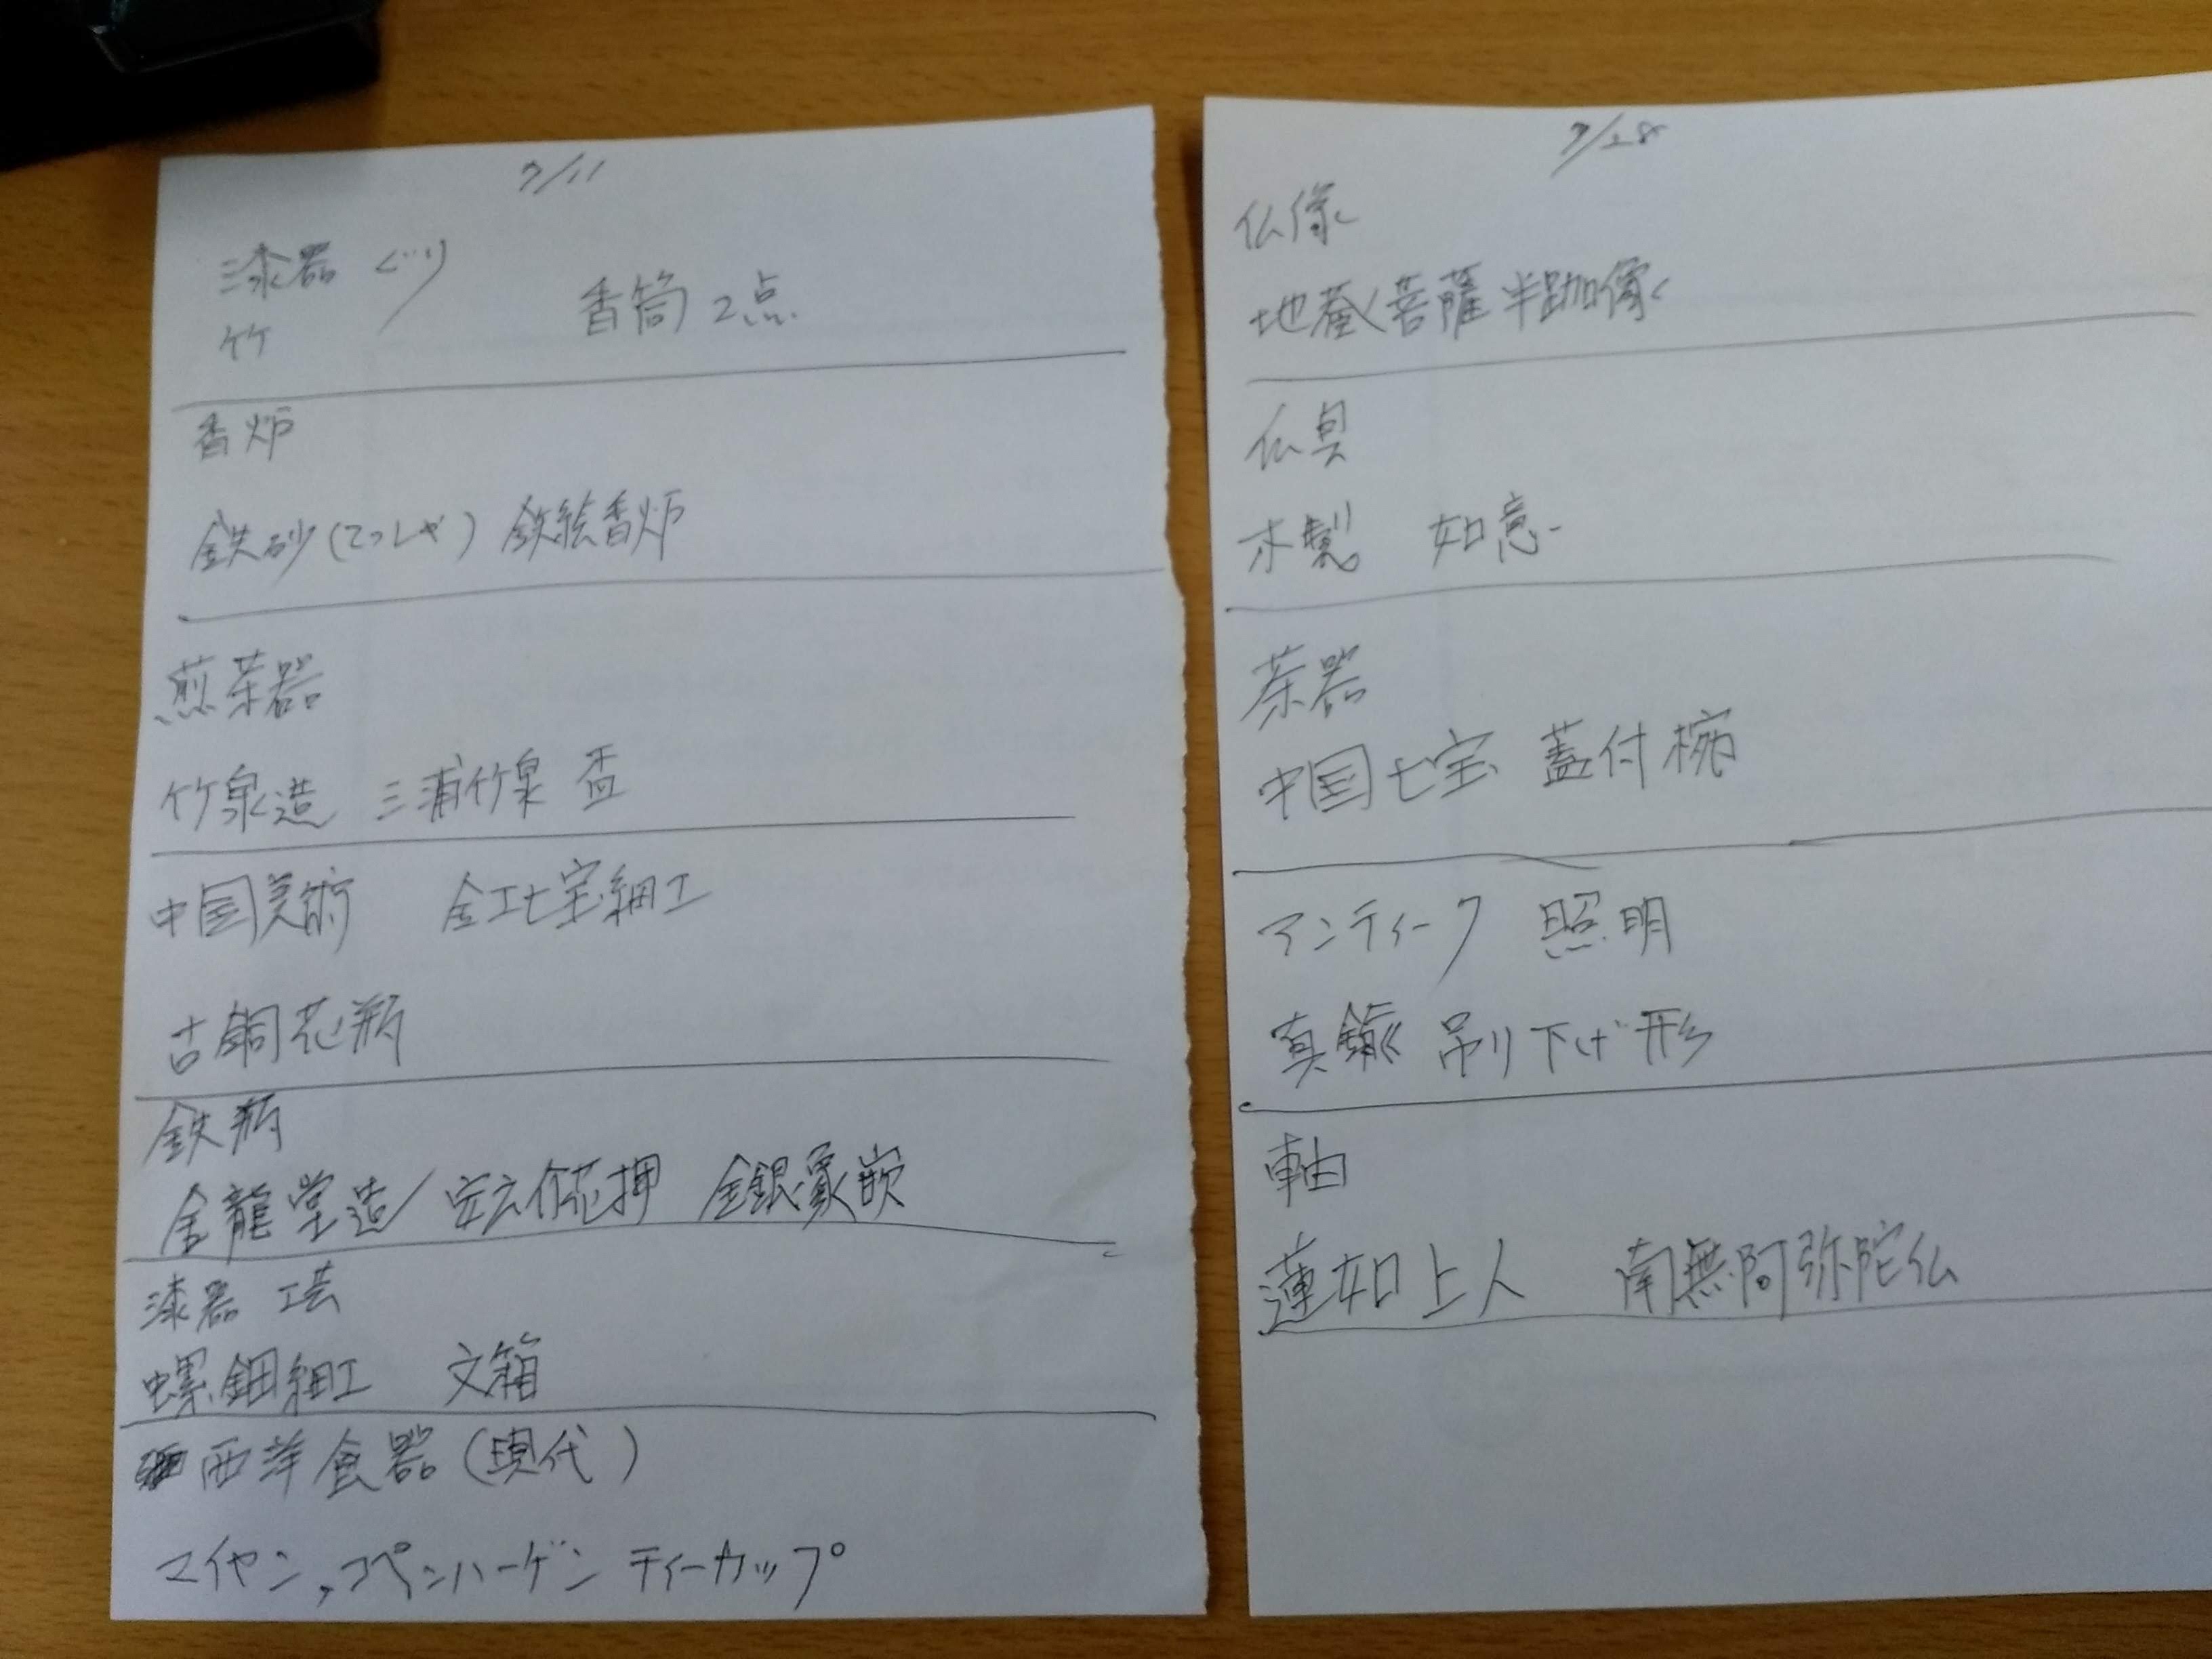 7/11
漆器 ぐり
香筒 2点
竹
香炉
鉄砂(てっしゃ) 鉄絵香炉
煎茶器
竹泉造 三浦竹泉 盃
中国美術 金工七宝細工
古銅花瓶
鉄瓶
金龍堂造/安之介花押 金銀象嵌
漆器 工芸
螺鈿細工 文箱
西洋食器(現代)
マイセン,コペンハーゲン ティーカップ
7/28
仏像
地蔵菩薩半跏像
仏具
木製 如意
茶器
中国七宝 蓋付椀
アンティーク 照明
真鍮 吊り下げ形
軸
蓮如上人 南無阿弥陀仏